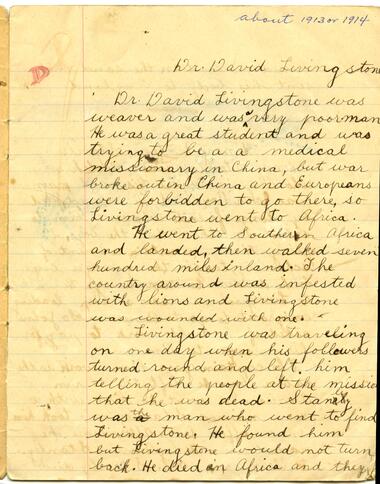 about 1913 or 1914
D
Dr. David Livingstone
Dr. David Livingstone was
weaver and was a very poor man
He was a great student and was
trying to be a a medical
missionary in China, but war
broke out in China and Europeans
were forbidden to go there, so
Livingstone went to Africa.
He went to Southern Africa
and landed, then walked seven
hundred miles inland. The
country around was infested
with lions and Livingstone
was wounded with one.
Livingstone was traveling
on one day when his followers
turned round and left him
telling the people at the mission
that he was dead. Stanley
was the man who went to find
Livingstone. He found him
but Livingstone would not turn
back. He died in Africa and they